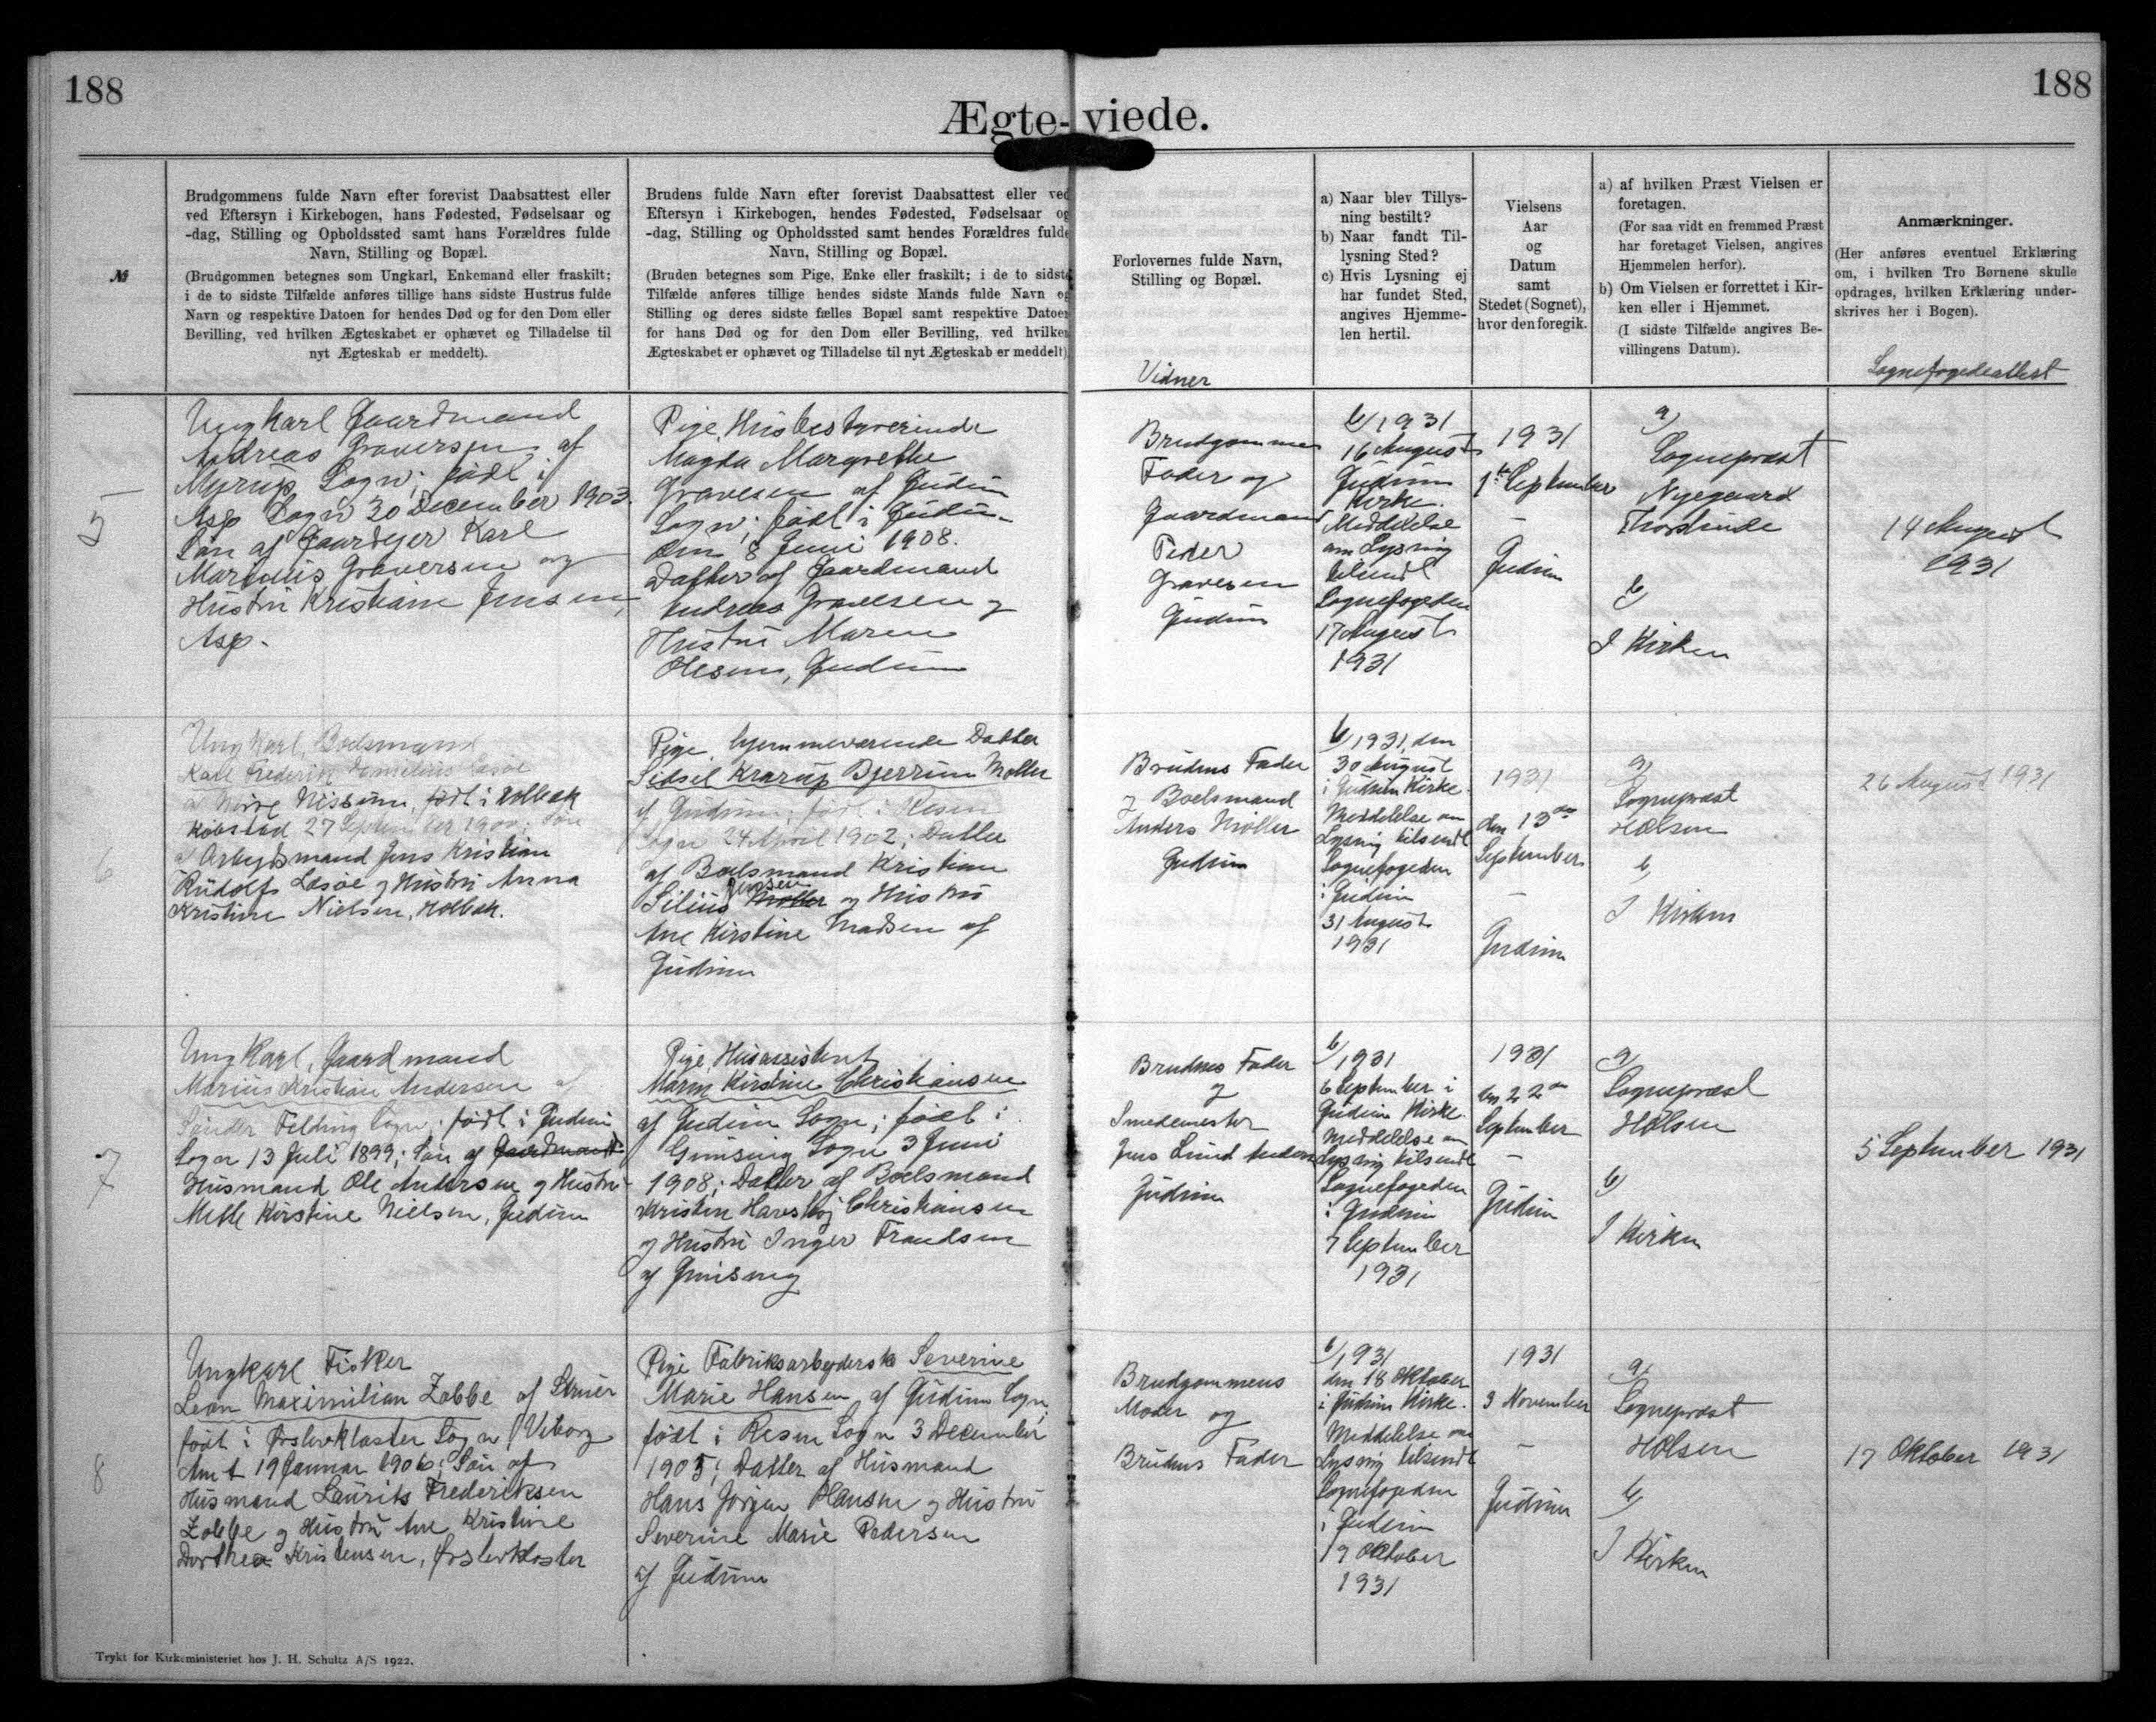 188
188
Ægte-viede.
№
Brudgommens fulde Navn efter forevist Daabsattest eller
ved Eftersyn i Kirkebogen, hans Fødested, Fødselsaar og
-dag, Stilling og Opholdssted samt hans Forældres fulde
Navn, Stilling og Bopæl.
(Brudgommen betegnes som Ungkarl, Enkemand eller fraskilt;
i de to sidste Tilfælde anføres tillige hans sidste Hustrus fulde
Navn og respektive Datoen for hendes Død og for den Dom eller
Bevilling, ved hvilken Ægteskabet er ophævet og Tilladelse til
nyt Ægteskab er meddelt).
Brudens fulde Navn efter forevist Daabsattest eller ved
Eftersyn i Kirkebogen, hendes Fødested, Fødselsaar og
-dag, Stilling og Opholdssted samt hendes Forældres fulde
Navn, Stilling og Bopæl.
(Bruden betegnes som Pige, Enke eller fraskilt; i de to sidste
Tilfælde anføres tillige hendes sidste Mands fulde Navn og
Stilling og deres sidste fælles Bopæl samt respektive Datoen
for hans Død og for den Dom eller Bevilling, ved hvilken
Ægteskabet er ophævet og Tilladelse til nyt Ægteskab er meddelt).
Forlovernes fulde Navn,
Stilling og Bopæl.
Vidner
a) Naar blev Tillys-
ning bestilt?
b) Naar fandt Til-
lysning Sted?
c) Hvis Lysning ej
har fundet Sted,
angives Hjemme-
len hertil.
Vielsens
Aar
og
Datum
samt
Stedet (Sognet),
hvor den foregik.
a) af hvilken Præst Vielsen er
foretagen.
(For saa vidt en fremmed Præst
har foretaget Vielsen, angives
Hjemmelen herfor).
b) Om Vielsen er forrettet i Kir-
ken eller i Hjemmet.
(I sidste Tilfælde angives Be-
villingens Datum).
Anmærkninger.
(Her anføres eventuel Erklæring
om, i hvilken Tro Børnene skulle
opdrages, hvilken Erklæring under-
skrives her i Bogen).
Sognefogedeattest
5
Ungkarl Gaardmand
Andreas Graversen af
Sogn; født i
Asp Sogn 30 December 1903.
Søn af Gaardejer Karl
Marinus Graversen og
Hustru Kristiane Jensen,
Asp.
Pige, Husbestyrerinde
Magda Margrethe
Gravesen af Gudum
Sogn; født i Gudum
den 8 Juni 1908.
Datter af Gaardmand
Andreas Gravesen og
Hustru Maren
Olesen, Gudum
Brudgommens
Fader og
Gaardmand
Peder
Gravesen
Gudum
b) 1931
16 August
Gudum
Kirke.
Meddelelse
om Lysning
tilsendt
Sognefogeden
17 August
1931
1931
1ste September
-
Gudum
a)
Sognepræst
Nyegaard
b)
I Kirken
14 August
1931
6
Ungkarl, Boelsmand
Karl Frederik Læsøe
af Nørre Nissum, født i Holbæk
Købstad 27 September 1900; Søn
af Arbejdsmand Jens Kristian
Rudolf Læsøe og Hustru Anna
Kristine Nielsen, Holbæk.
Pige, hjemmeværende Datter
Sidsel Krarup Bjerrum Møller
af Gudum; født i Resen
Sogn 24 April 1902; Datter
af Boelsmand Kristian
Jensen
Silius Møller og Hustru
Ane Kirstine Madsen af
Gudum
Brudens Fader
og Boelsmand
Anders Møller
Gudum
b) 1931, den
30 August
i Gudum Kirke.
Meddelelse om
Lysning tilsendt
Sognefogeden
i Gudum
31 August
1931
1931
den 13de
September
-
Gudum
a)
Sognepræst
Holsen
b)
I Kirken
26 August 1931
7
Ungkarl, Gaardmand
Marius Kristian Andersen af
Sønder Felding Sogn; født i Gudum
Sogn 13 Juli 1899; Søn af Gaardmand
Husmand Ole Andersen og Hustru
Mette Kirstine Nielsen, Gudum
Pige, Husassistent
Maren Kirstine Christiansen
af Gudum Sogn; født i
Gimsing Sogn 3 Juni
1908; Datter af Boelsmand
Kristen Christiansen
og Hustru Inger Frandsen
af Gimsing
Brudens Fader
og
Smedemester
Jens Lund Andersen
Gudum
b) 1931
6 September i
Gudum Kirke.
Meddelelse om
Lysning tilsendt
Sognefogeden
i Gudum
7 September
1931
1931
den 22de
September
-
Gudum
a)
Sognepræst
Holsen
b)
I Kirken
5 September 1931
8
Ungkarl Fisker
Leon Maximilian Zobbe af Struer
født i Ørslevkloster Sogn, Viborg
Amt 19 Januar 1906; Søn af
Husmand Laurits Frederiksen
Zobbe og Hustru Ane Kristine
Dorthea Kristensen, Ørslevkloster
Pige Fabriksarbejderske Severine
Marie Hansen af Gudum Sogn,
født i Resen Sogn 3 December
1905; Datter af Husmand
Hans Jørgen Hansen og Hustru
Severine Marie Pedersen
af Gudum
Brudgommens
Moder og
Brudens Fader
b) 1931
den 18 Oktober
i Gudum Kirke.
Meddelelse om
Lysning tilsendt
Sognefogeden
i Gudum
19 Oktober
1931
1931
3 November
-
Gudum
a)
Sognepræst
Holsen
b)
I Kirken
17 Oktober 1931
Trykt for Kirkeministeriet hos J. H. Schultz A/S 1922.